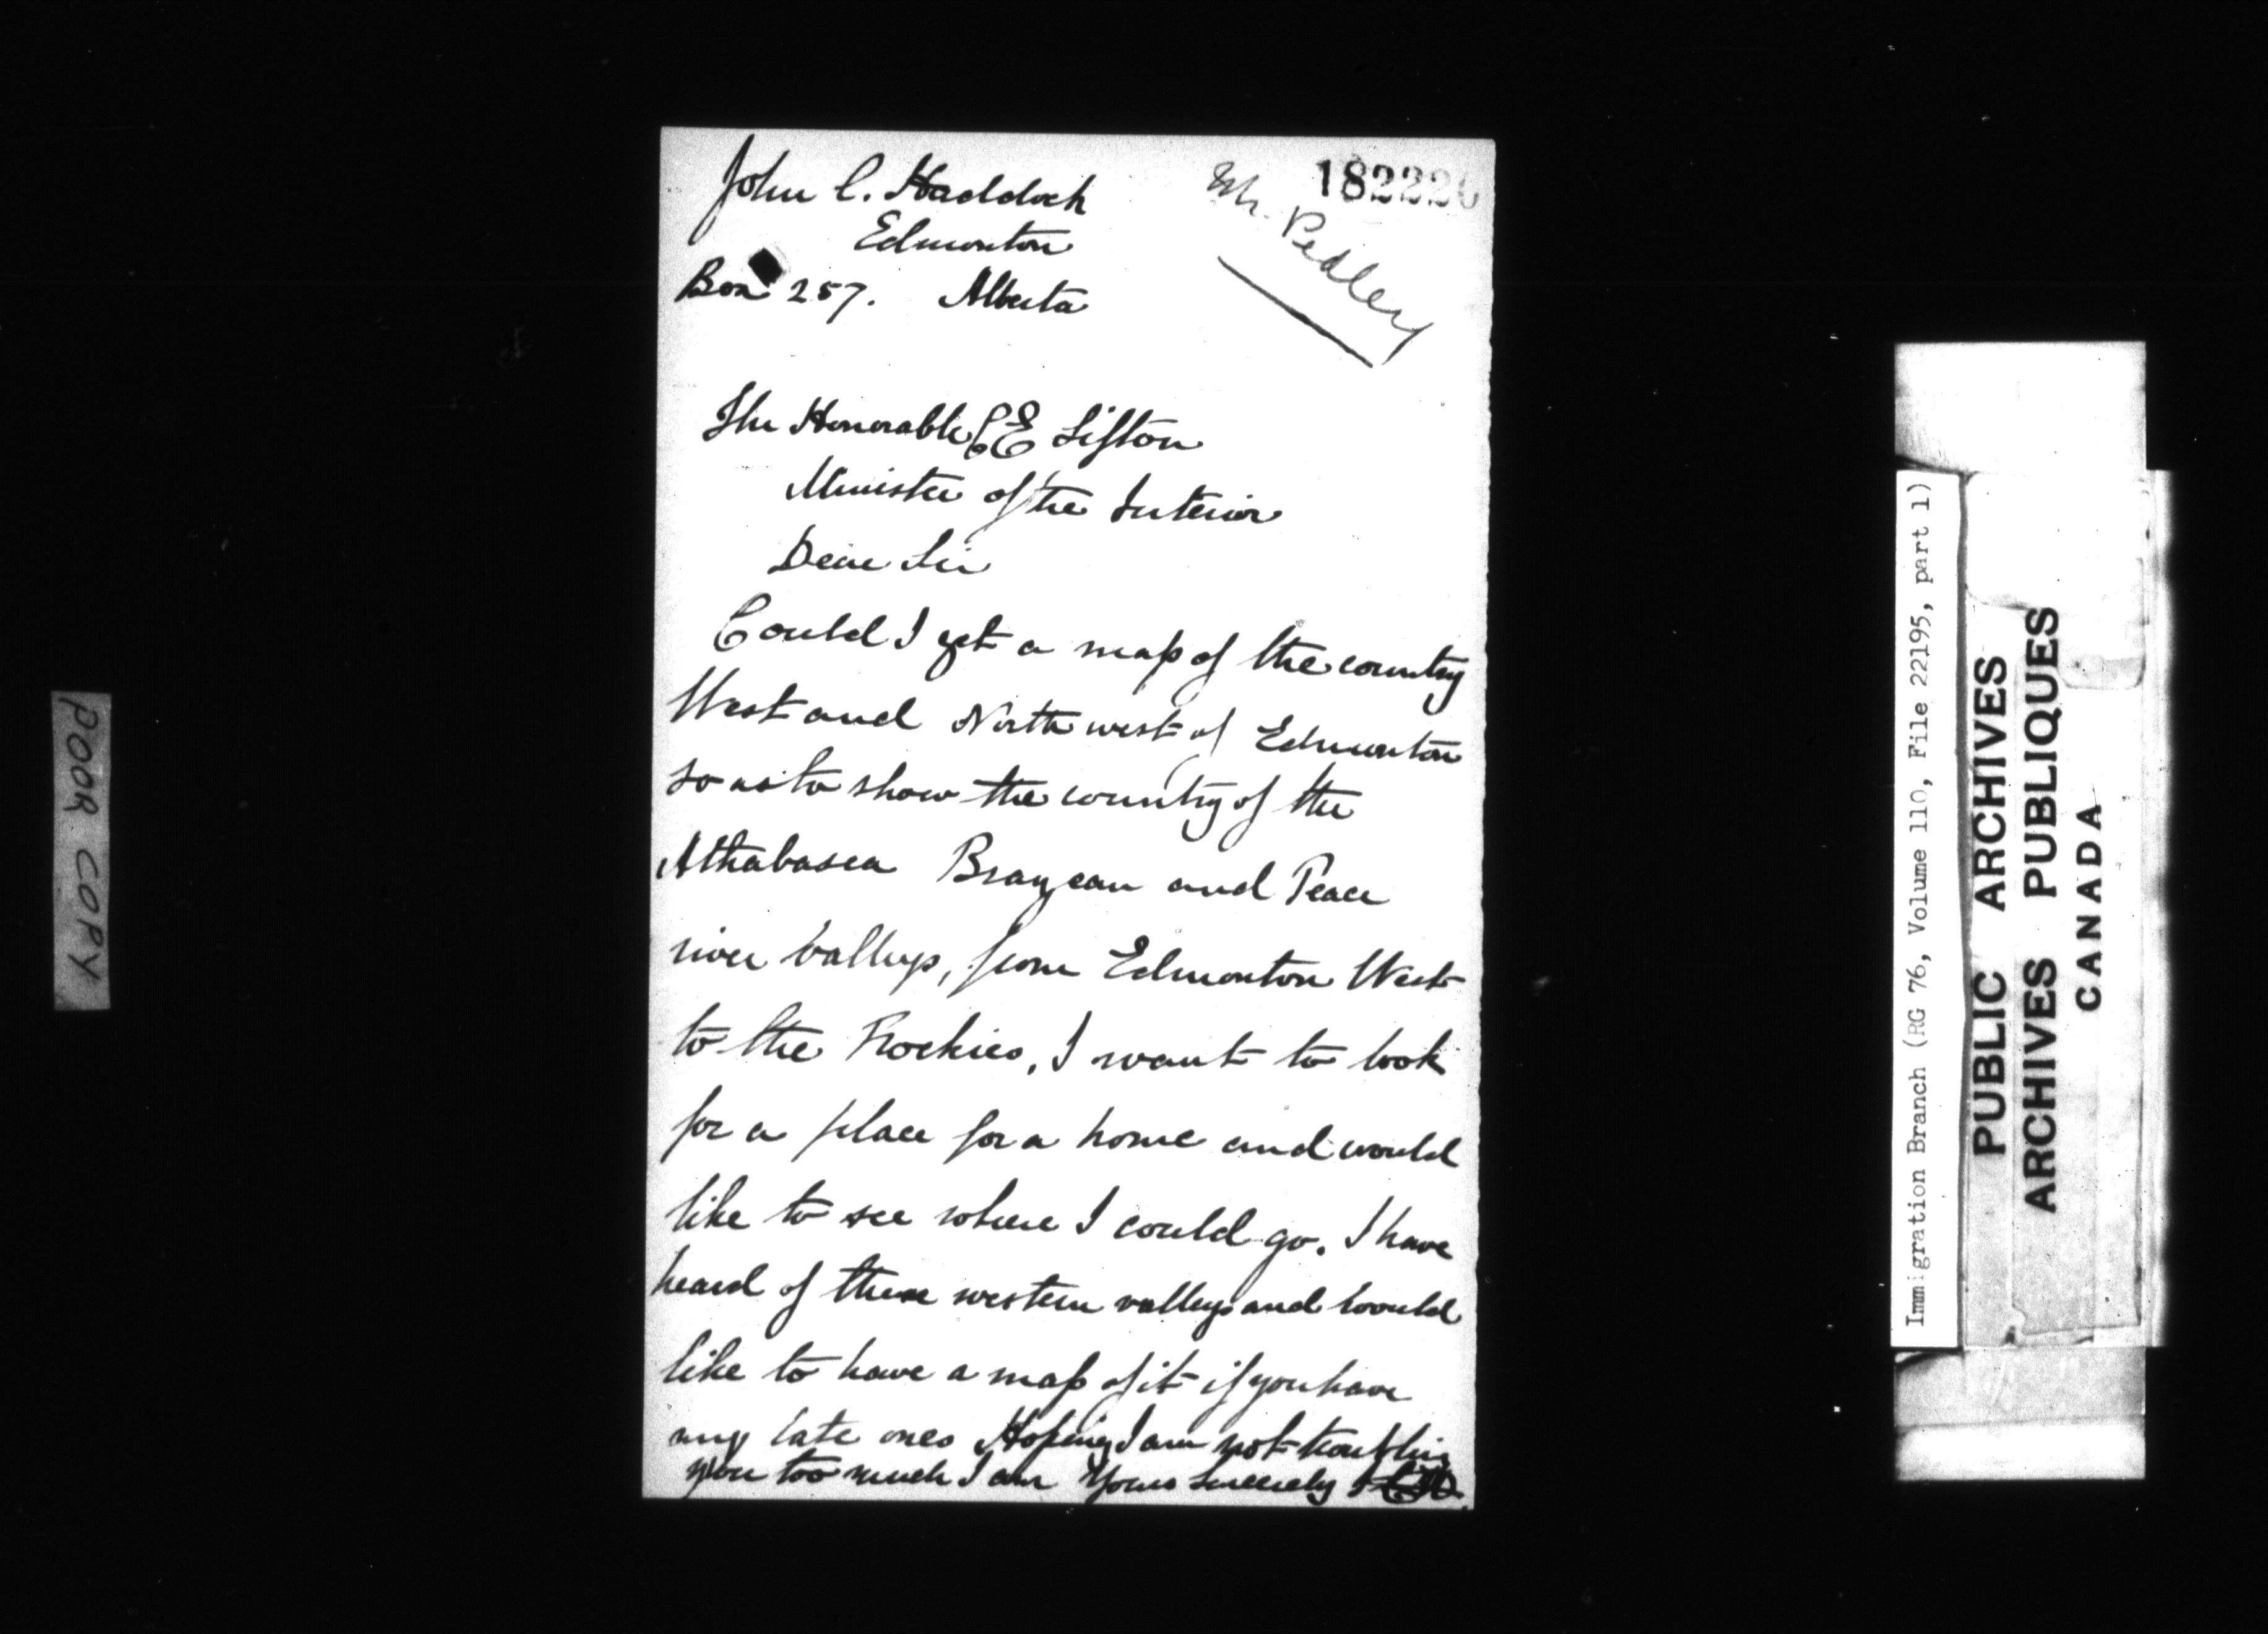 John C. Haddock
Edmonton
Box 257. Alberta
Mr. Pedley
The Honorable Sifton
Minister of the Interior
Dear Sir
Could I get a map of the country
West and North west of Edmonton
so as to show the country of the
Athabasca Brazeau and Peace
river valleys, from Edmonton West
to the Rockies, I want to look
for a place for a home and would
like to see where I could go. I have
heard of these western valleys and would
like to have a map of it if you have
any late ones Hoping I am not troubling
you too much I am Yours Sincerely
POOR COPY
Immigration Branch (RG 76, Volume 110, File 22195, part 1)
PUBLIC ARCHIVES
ARCHIVES PUBLIQUES
CANADA